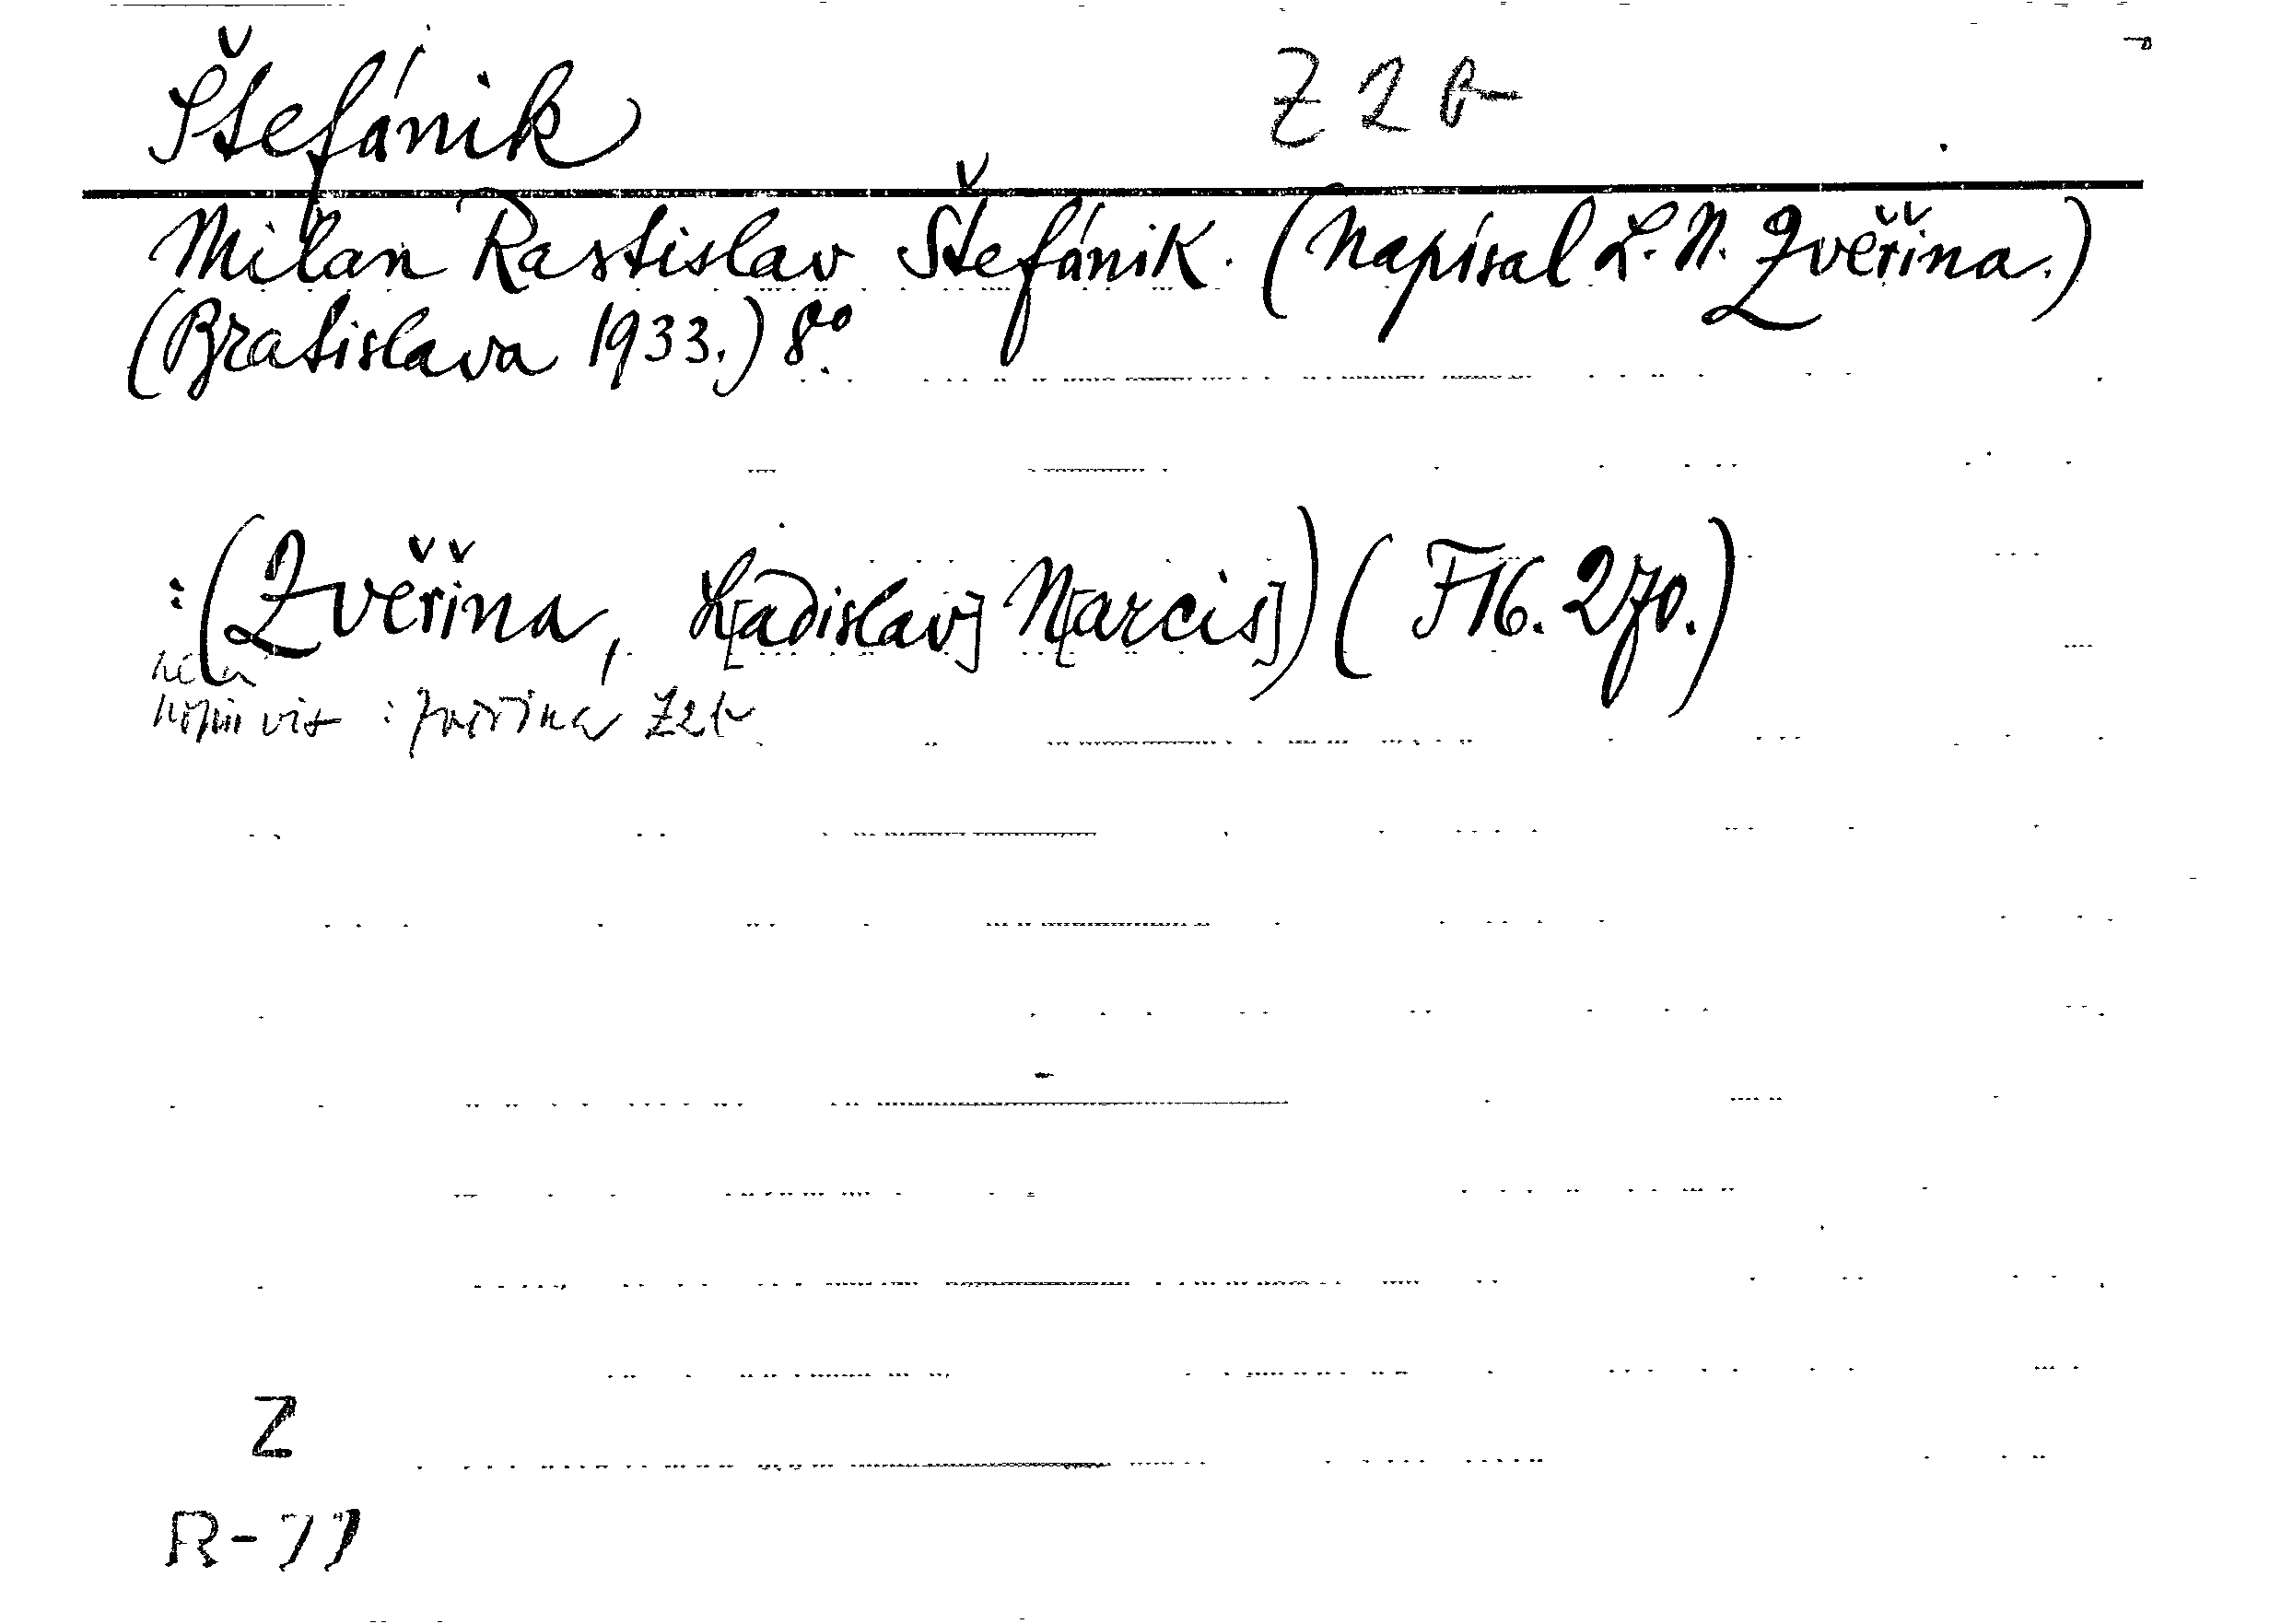 Štefánik Z 2 b
Milan Rastislav Štefánik. (Napísal L. N. Zvěřina.)
(Bratislava 1933.) 8°.
: (Zvěřina, L[adislav] N[arcis]) (F16. 270.)
Z
R-77